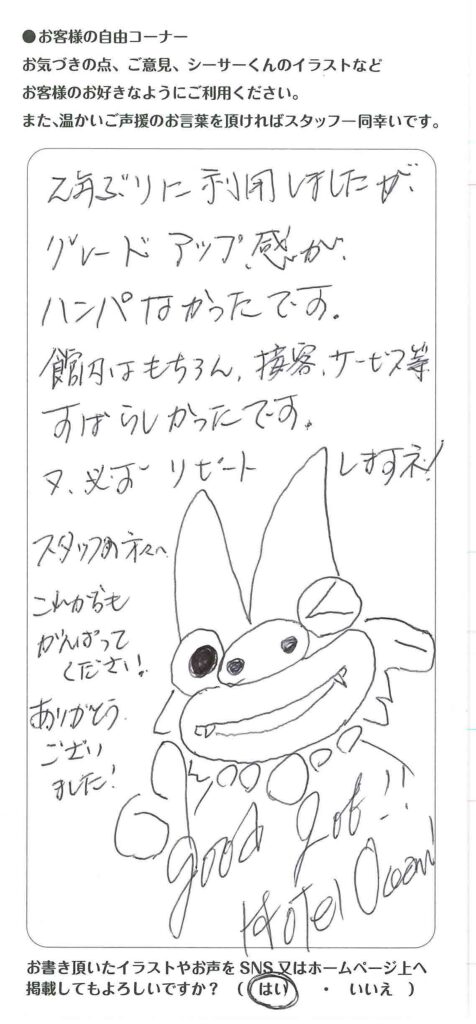 ●お客様の自由コーナー
お気づきの点、ご意見、シーサーくんのイラストなど
お客様のお好きなようにご利用ください。
また、温かいご声援のお言葉を頂ければスタッフ一同幸いです。
2年ぶりに利用しましたが、
グレードアップ感が、
ハンパなかったです。
館内はもちろん、接客、サービス等
すばらしかったです。
又、必ず リピート しますネ!
スタッフの方々へ
これからも
がんばって
ください!
ありがとう
ござい
ました!
good Job!!
Hotel Ocean!
お書き頂いたイラストやお声を SNS 又はホームページ上へ
掲載してもよろしいですか? ( はい ・ いいえ )